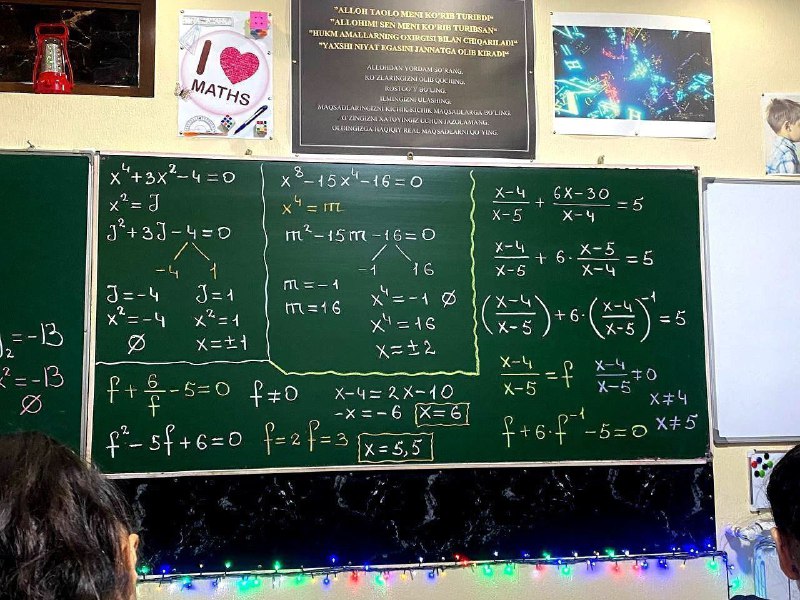 I
MATHS
"ALLOH TAOLO MENI KO'RIB TURIBDI"
"ALLOHIM! SEN MENI KO'RIB TURIBSAN"
"HUKM AMALLARNING OXIRGISI BILAN CHIQARILADI"
"YAXSHI NIYAT EGASINI JANNATGA OLIB KIRADI"
ALLOHDAN YORDAM SO'RANG.
KO'ZLARINGIZNI OLIB QOCHING.
ROSTGO'Y BO'LING.
ILMINGIZNI ULASHING.
MAQSADLARINGIZNI KICHIK-KICHIK MAQSADLARGA BO'LING.
O'ZINGIZNI XATOYINGIZ UCHUN JAZOLAMANG.
OLDINGIZGA HAQIQIY REAL MAQSADLARNI QO'YING.
₂=-13
x²=-13
∅
x⁴+3x²-4=0
x²=J
J²+3J-4=0
-4 1
J=-4 J=1
x²=-4 x²=1
∅ x=±1
x⁸-15x⁴-16=0
x⁴=m
m²-15m-16=0
-1 16
m=-1 x⁴=-1 ∅
m=16 x⁴=16
x=±2
(x-4)/(x-5) + (6x-30)/(x-4) = 5
(x-4)/(x-5) + 6·(x-5)/(x-4) = 5
((x-4)/(x-5)) + 6·((x-4)/(x-5))⁻¹ = 5
(x-4)/(x-5) = f (x-4)/(x-5) ≠ 0
x≠4
x≠5
f+6·f⁻¹-5=0
f+6/f-5=0 f≠0 x-4=2x-10
-x=-6 x=6
f²-5f+6=0 f=2 f=3 x=5,5